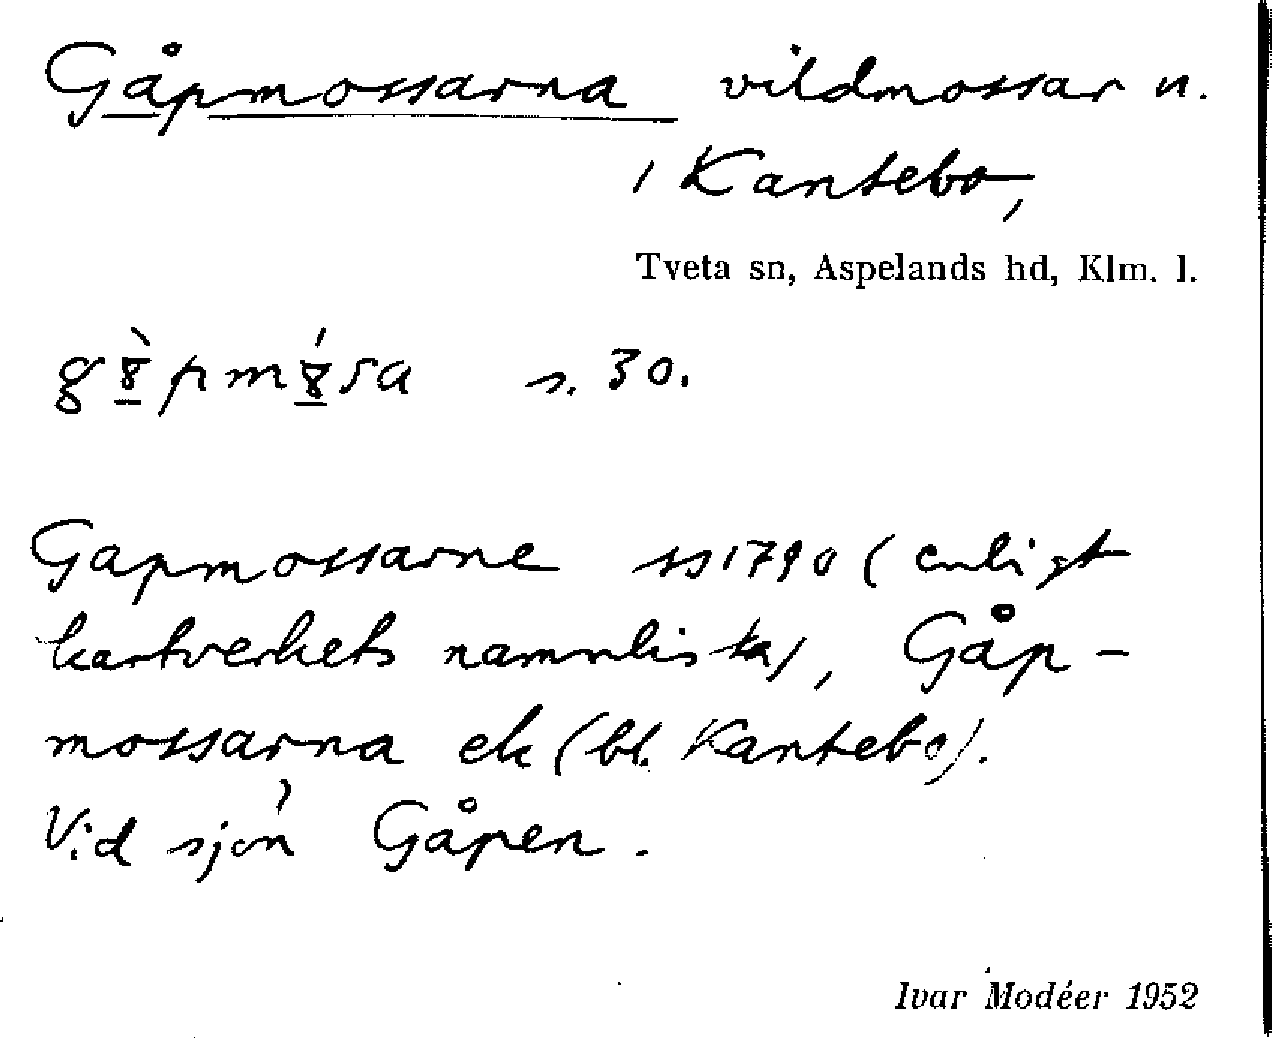 Gåpmossarna vildmossar n.
i Kantebo,
Tveta sn, Aspelands hd, Klm. l.
s. 30.
Gapmossarne ss 1790 (enligt
kartverkets namnlista), Gåp-
mossarna ek (bl. Kantebo).
Vid sjön Gåpen.
Ivar Modéer 1952